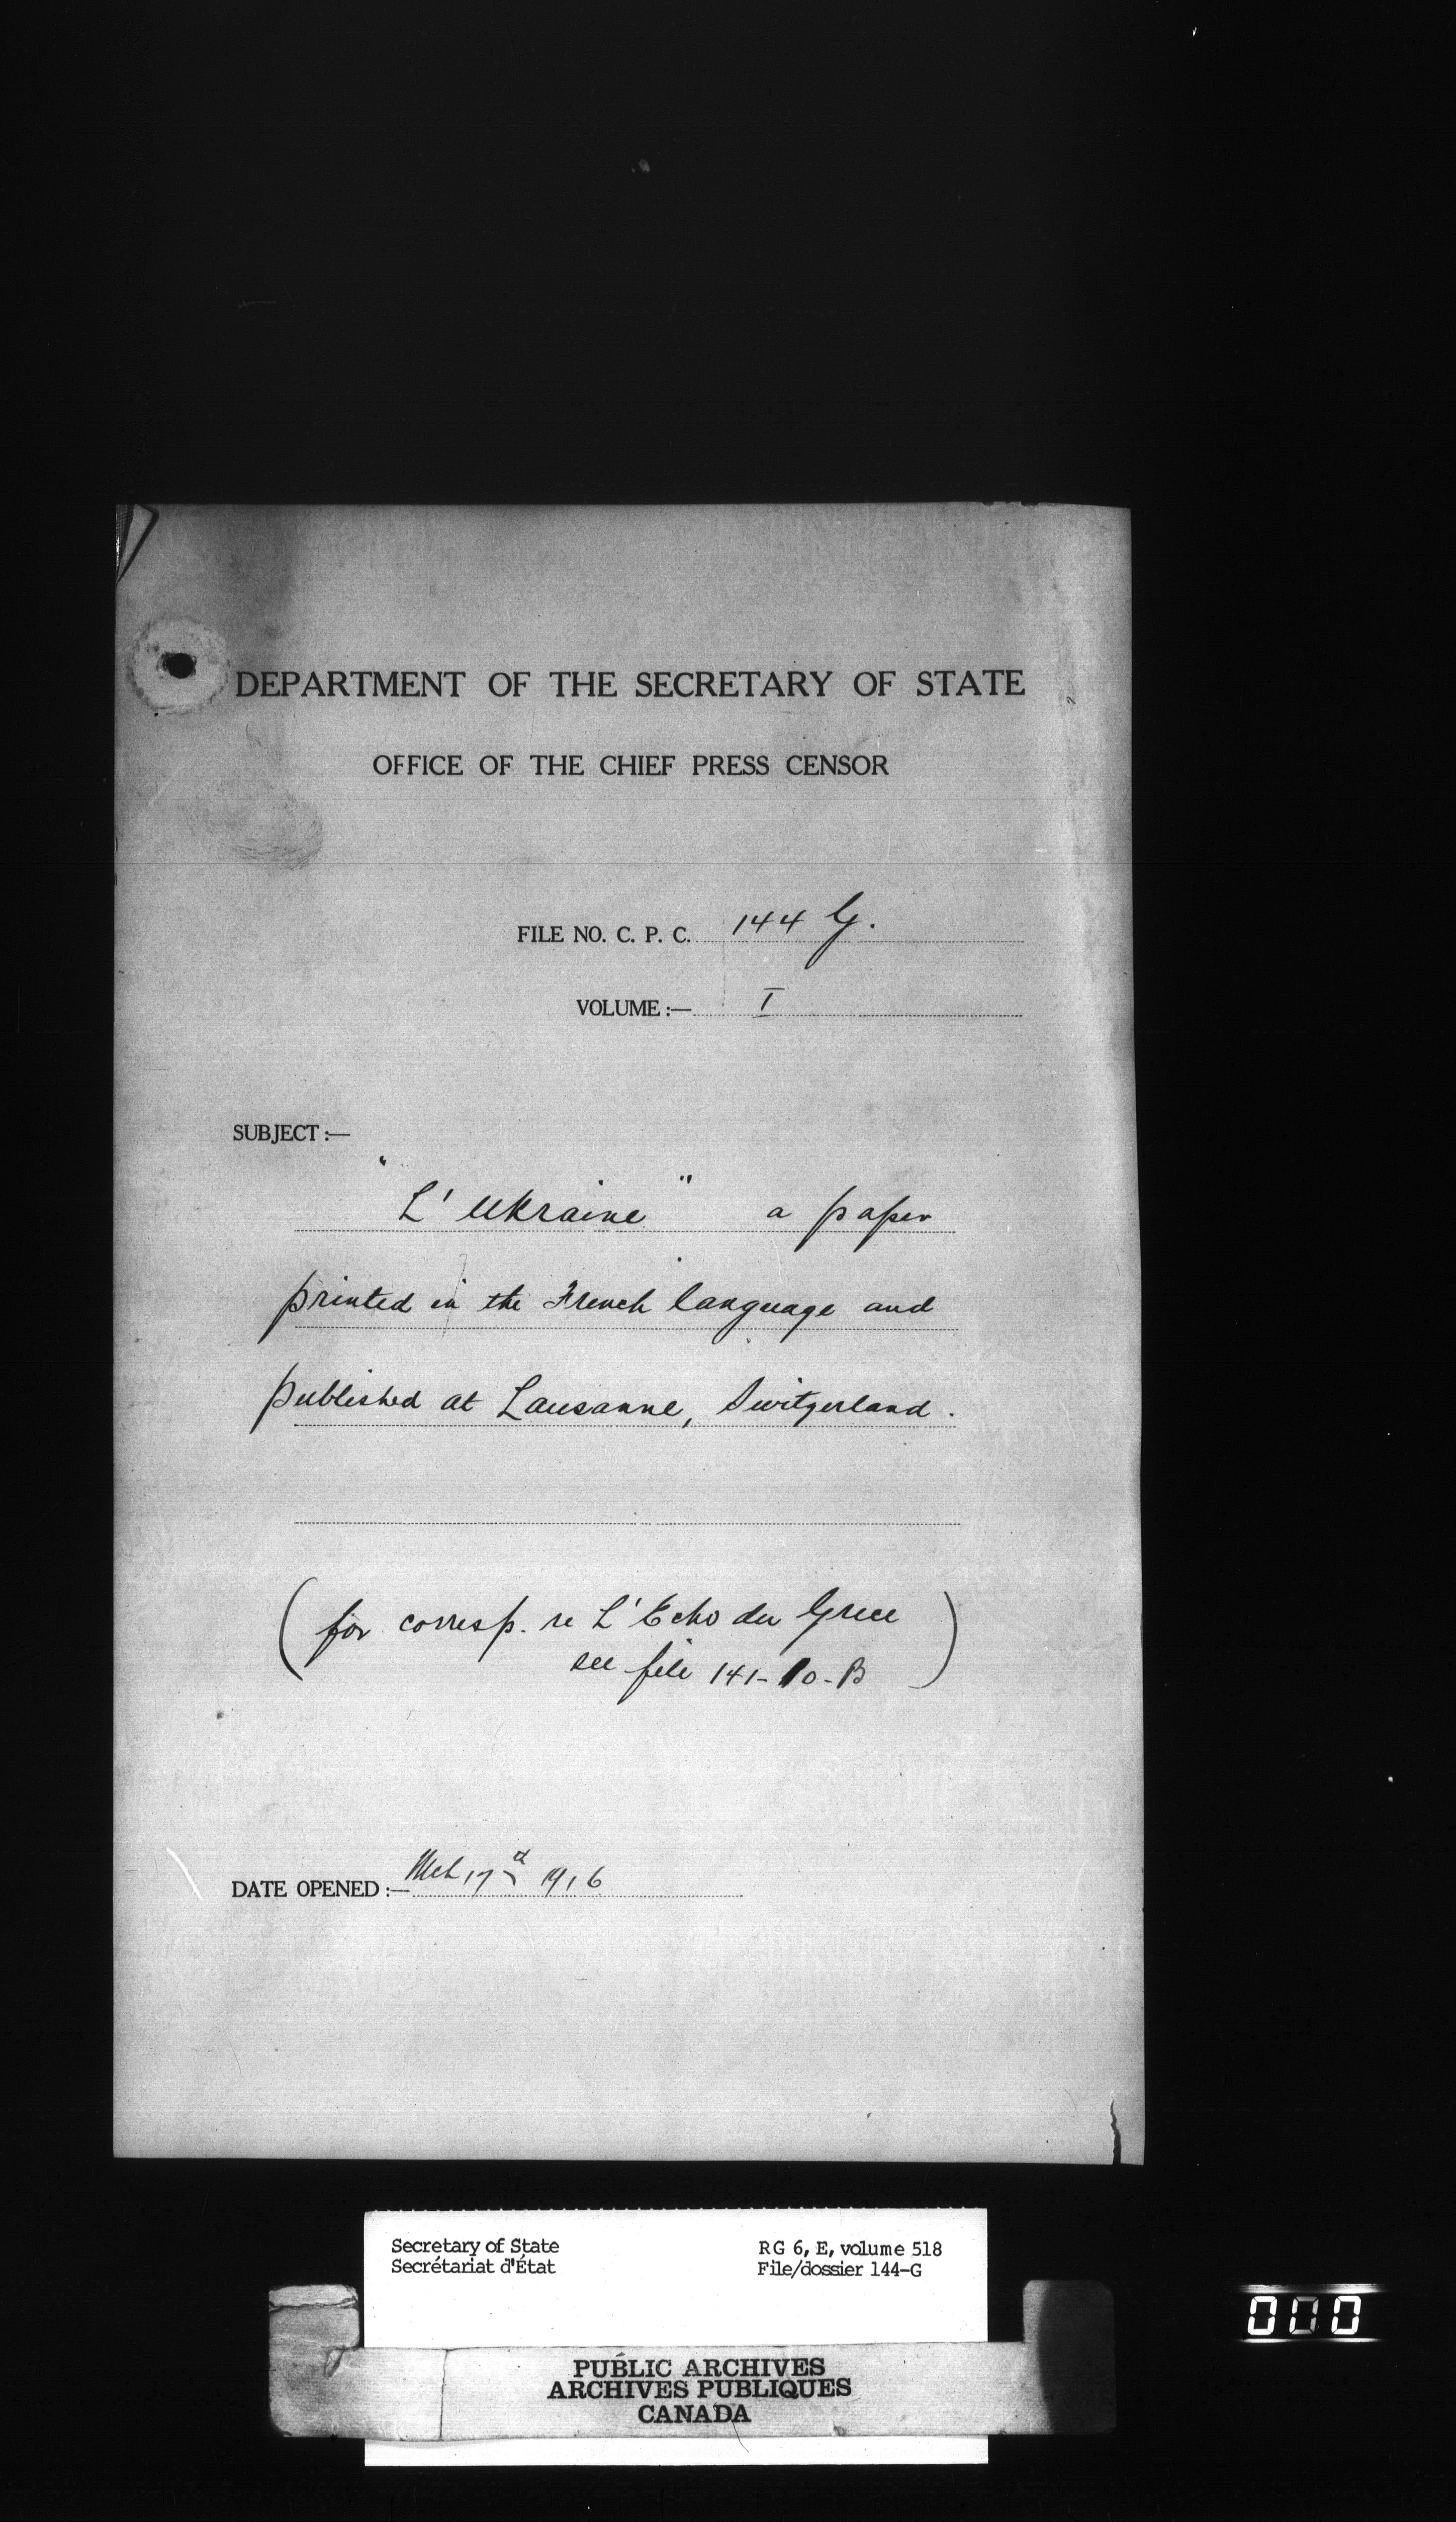 DEPARTMENT OF THE SECRETARY OF STATE
OFFICE OF THE CHIEF PRESS CENSOR
FILE NO. C. P. C. 144 G.
VOLUME :— I
SUBJECT :—
"L'Ukraine" a paper
printed in the French language and
published at Lausanne, Switzerland.
(for corresp. re L'Echo du Grece
see file 141-10-B)
DATE OPENED :— Mch 17 1916
Secretary of State RG 6, E, volume 518
Secrétariat d'État File/dossier 144-G
PUBLIC ARCHIVES
ARCHIVES PUBLIQUES
CANADA
000